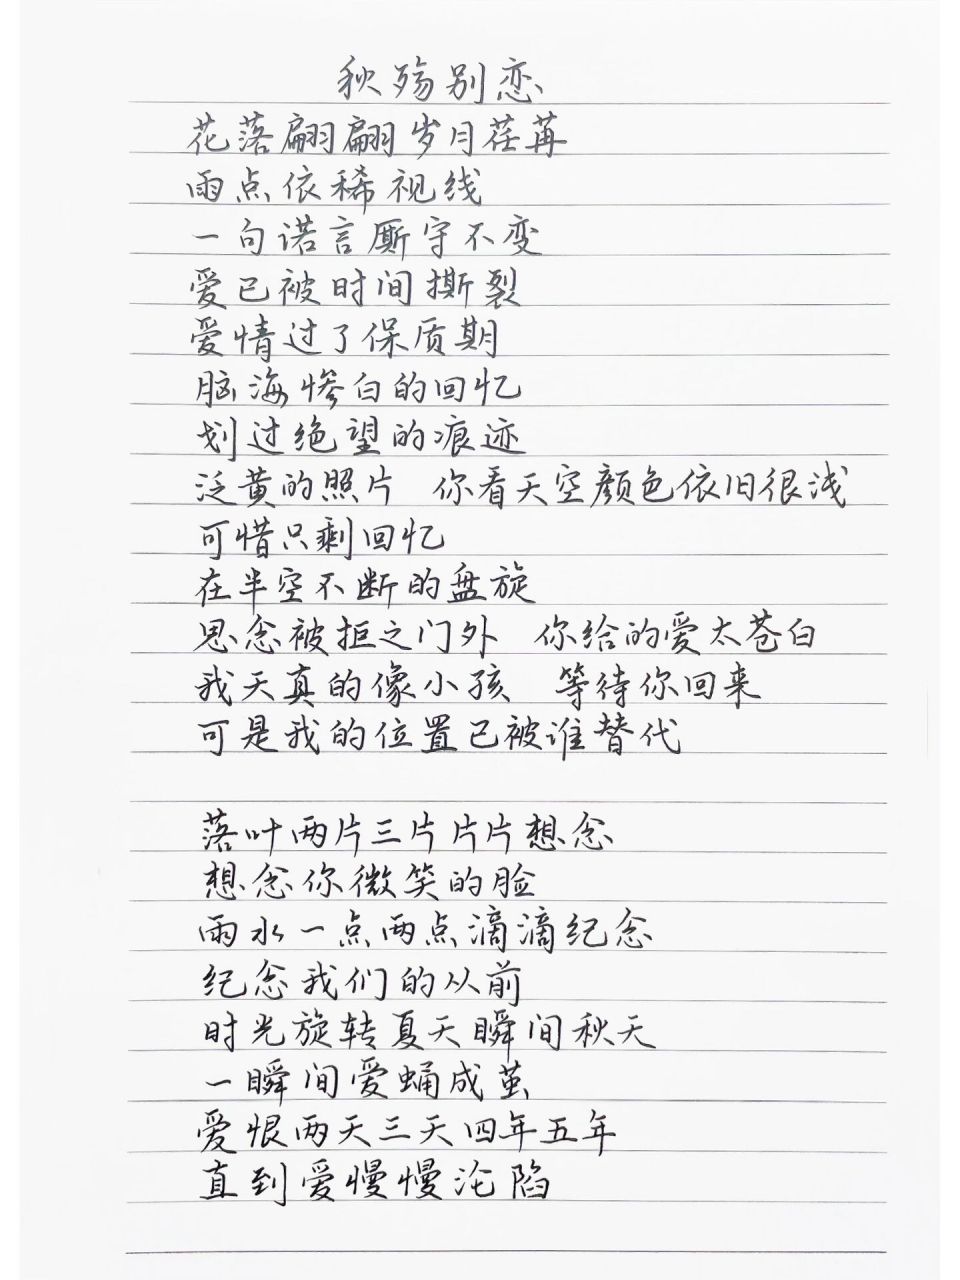 秋殇别恋
花落翩翩岁月荏苒
雨点依稀视线
一句诺言厮守不变
爱已被时间撕裂
爱情过了保质期
脑海惨白的回忆
划过绝望的痕迹
泛黄的照片 你看天空颜色依旧很浅
可惜只剩回忆
在半空不断的盘旋
思念被拒之门外 你给的爱太苍白
我天真的像小孩 等待你回来
可是我的位置已被谁替代
落叶两片三片片片想念
想念你微笑的脸
雨水一点两点滴滴纪念
纪念我们的从前
时光旋转夏天瞬间秋天
一瞬间爱蛹成茧
爱恨两天三天四年五年
直到爱慢慢沦陷